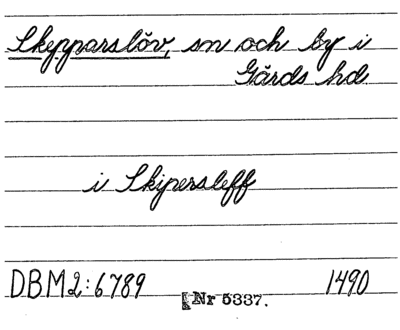 Skepparslöv, sn och by i
Gärds hd.
i Skipersleff
DBM2:6789 1490
[Nr 5337.